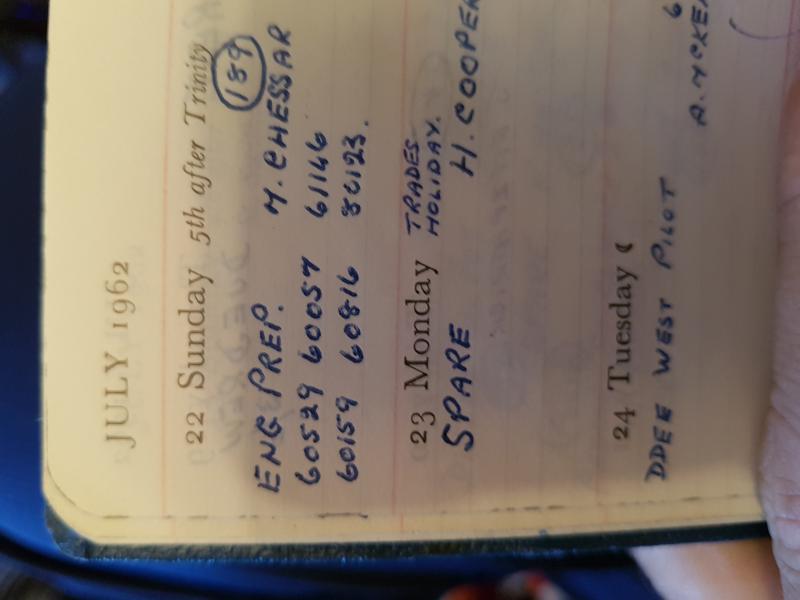 JULY 1962
22 Sunday 5th after Trinity 189
ENG PREP. M. CHESSAR
60529 60057 61146
60159 60816 80123.
23 Monday TRADES HOLIDAY.
SPARE H. COOPER
24 Tuesday
DDEE WEST PILOT